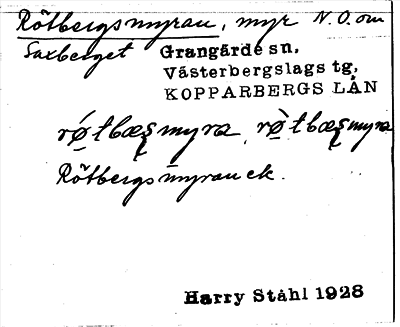 Rötbergsmyran, myr N.O. om
Saxberget Grangärde sn.
Västerbergslags tg.
KOPPARBERGS LÄN
rø̀tbæʂmyra, rø̀tbæʂmyra
Rötbergsmyran ek.
Harry Ståhl 1928